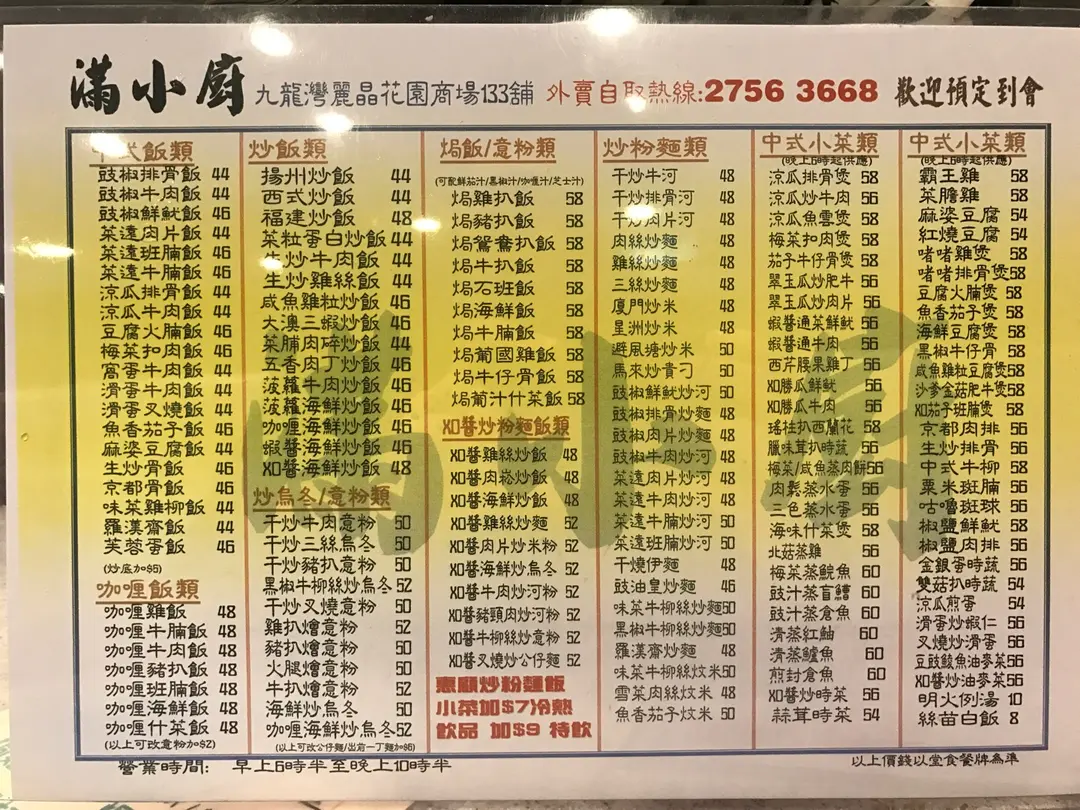 滿小廚 九龍灣麗晶花園商場133舖 外賣自取熱線:2756 3668 歡迎預定到會
中式飯類
豉椒排骨飯 44
豉椒牛肉飯 44
豉椒鮮魷飯 46
菜遠肉片飯 44
菜遠班腩飯 46
菜遠牛腩飯 46
涼瓜排骨飯 44
涼瓜牛肉飯 44
豆腐火腩飯 46
梅菜扣肉飯 46
窩蛋牛肉飯 46
滑蛋牛肉飯 44
滑蛋叉燒飯 44
魚香茄子飯 46
麻婆豆腐飯 44
生炒骨飯 46
京都骨飯 46
味菜雞柳飯 44
羅漢齋飯 44
芙蓉蛋飯 46
(炒底加$5)
咖喱飯類
咖喱雞飯 48
咖喱牛腩飯 48
咖喱牛肉飯 48
咖喱豬扒飯 48
咖喱班腩飯 48
咖喱海鮮飯 48
咖喱什菜飯 48
(以上可改意粉加$2)
炒飯類
揚州炒飯 44
西式炒飯 44
福建炒飯 48
菜粒蛋白炒飯 44
生炒牛肉飯 44
生炒雞絲飯 44
咸魚雞粒炒飯 46
大澳三蝦炒飯 46
菜脯肉碎炒飯 44
五香肉丁炒飯 46
菠蘿牛肉炒飯 46
菠蘿海鮮炒飯 46
咖喱海鮮炒飯 46
蝦醬海鮮炒飯 46
XO醬海鮮炒飯 48
炒烏冬/意粉類
干炒牛肉意粉 50
干炒三絲烏冬 50
干炒豬扒意粉 50
黑椒牛柳絲炒烏冬 52
干炒叉燒意粉 50
雞扒燴意粉 52
豬扒燴意粉 50
火腿燴意粉 50
牛扒燴意粉 52
海鮮炒烏冬 50
咖喱海鮮炒烏冬 52
(以上可改公仔麵/出前一丁麵加$6)
焗飯/意粉類
(可配鮮茄汁/黑椒汁/咖喱汁/芝士汁)
焗雞扒飯 58
焗豬扒飯 58
焗鴛鴦扒飯 58
焗牛扒飯 58
焗石班飯 58
焗海鮮飯 58
焗牛腩飯 58
焗葡國雞飯 58
焗牛仔骨飯 58
焗葡汁什菜飯 58
XO醬炒粉麵飯類
XO醬雞絲炒飯 48
XO醬肉崧炒飯 48
XO醬海鮮炒飯 48
XO醬雞絲炒麵 52
XO醬肉片炒米粉 52
XO醬海鮮炒烏冬 52
XO醬牛肉炒河粉 52
XO醬豬頸肉炒河粉 52
XO醬牛柳絲炒意粉 52
XO醬叉燒炒公仔麵 52
惠顧炒粉麵飯
小菜加$7冷熱
飲品 加$9 特飲
炒粉麵類
干炒牛河 48
干炒排骨河 48
干炒肉片河 48
肉絲炒麵 48
雞絲炒麵 48
三絲炒麵 48
廈門炒米 48
星洲炒米 48
避風塘炒米 50
馬來炒貴刁 50
豉椒鮮魷炒河 50
豉椒排骨炒麵 48
豉椒肉片炒麵 48
豉椒牛肉炒河 48
菜遠肉片炒河 48
菜遠牛肉炒河 48
菜遠牛腩炒河 50
菜遠班腩炒河 50
干燒伊麵 48
豉油皇炒麵 46
味菜牛柳絲炒麵 50
黑椒牛柳絲炒麵 50
羅漢齋炒麵 48
味菜牛柳絲炆米 50
雪菜肉絲炆米 48
魚香茄子炆米 50
中式小菜類
(晚上6時起供應)
涼瓜排骨煲 58
涼瓜炒牛肉 56
涼瓜魚雲煲 58
梅菜扣肉煲 58
茄子牛仔骨煲 58
翠玉瓜炒肥牛 56
翠玉瓜炒肉片 56
蝦醬通菜鮮魷 56
蝦醬通牛肉 56
西芹腰果雞丁 56
XO勝瓜鮮魷 56
XO勝瓜牛肉 56
瑤柱扒西蘭花 58
臘味茸扒時蔬 56
梅菜/咸魚蒸肉餅 56
肉鬆蒸水蛋 56
三色蒸水蛋 56
海味什菜煲 58
北菇蒸雞 56
梅菜蒸鯇魚 60
豉汁蒸盲鰽 60
豉汁蒸倉魚 60
清蒸紅鮋 60
清蒸鱸魚 60
煎封倉魚 60
XO醬炒時菜 56
蒜茸時菜 54
中式小菜類
(晚上6時起供應)
霸王雞 58
菜膽雞 58
麻婆豆腐 54
紅燒豆腐 54
啫啫雞煲 58
啫啫排骨煲 58
豆腐火腩煲 58
魚香茄子煲 58
海鮮豆腐煲 58
黑椒牛仔骨 58
咸魚雞粒豆腐煲 58
沙爹金菇肥牛煲 58
XO茄子班腩煲 58
京都肉排 56
生炒排骨 56
中式牛柳 58
粟米斑腩 56
咕嚕斑球 56
椒鹽鮮魷 58
椒鹽肉排 56
金銀蛋時蔬 56
雙菇扒時蔬 54
涼瓜煎蛋 54
滑蛋炒蝦仁 56
叉燒炒滑蛋 56
豆豉鯪魚油麥菜 56
XO醬炒油麥菜 56
明火例湯 10
絲苗白飯 8
營業時間: 早上6時半至晚上10時半
以上價錢以堂食餐牌為準